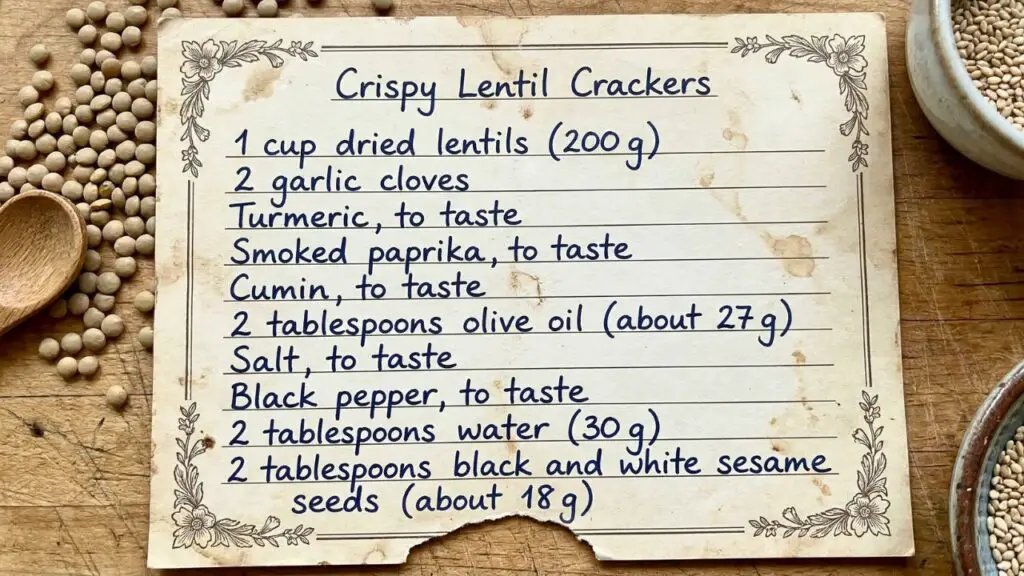 Crispy Lentil Crackers
1 cup dried lentils (200 g)
2 garlic cloves
Turmeric, to taste
Smoked paprika, to taste
Cumin, to taste
2 tablespoons olive oil (about 27 g)
Salt, to taste
Black pepper, to taste
2 tablespoons water (30 g)
2 tablespoons black and white sesame
seeds (about 18 g)